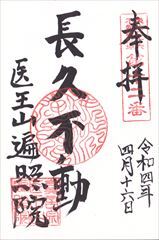 奉拝
令和四年
四月十六日
長久不動
医王山遍照院